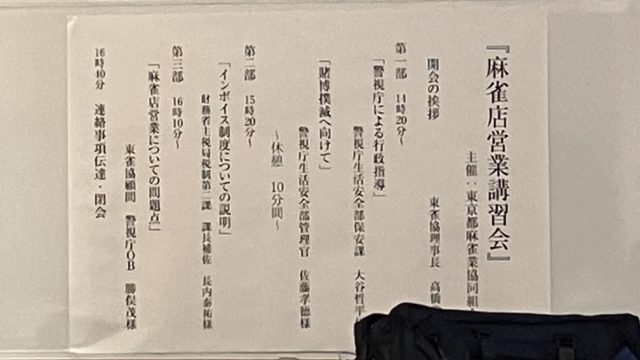 『麻雀店営業講習会』
主催：東京都麻雀業協同組
開会の挨拶　東雀協理事長　高橋
第一部　14時20分～
「警視庁による行政指導」
警視庁生活安全部保安課　大谷哲平
「賭博撲滅へ向けて」
警視庁生活安全部管理官　佐藤孝徳様
～休憩　10分間～
第二部　15時20分～
「インボイス制度についての説明」
財務省主税局税制第二課　課長補佐　長内泰祐様
第三部　16時10分～
「麻雀店営業についての問題点」
東雀協顧問　警視庁OB　勝俣茂様
16時40分　連絡事項伝達・閉会